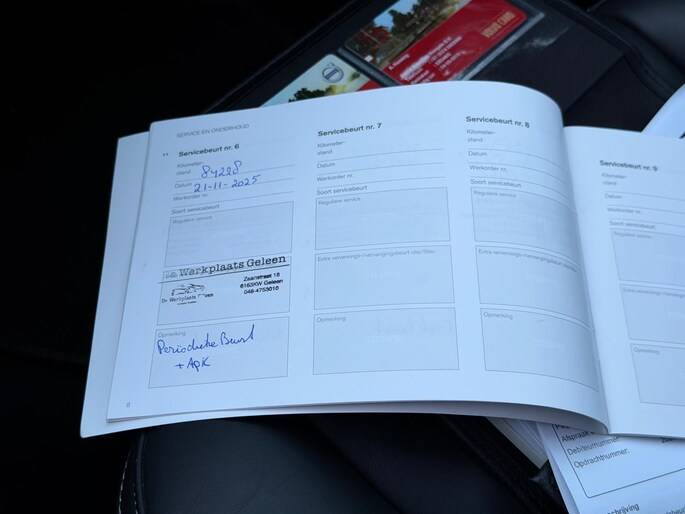 SERVICE EN ONDERHOUD
Servicebeurt nr. 6
Kilometer-
stand 84228
Datum 21-11-2025
Werkorder nr.
Soort servicebeurt
Reguliere service
De Werkplaats Geleen
Zaanstraat 18
6163KW Geleen
046-4753016
De Werkplaats Geleen
Opmerking
Periodieke Beurt
+ APK
6
Servicebeurt nr. 7
Kilometer-
stand
Datum
Werkorder nr.
Soort servicebeurt
Reguliere service
Extra verversings-/vervangingsbeurt olie/filter:
Opmerking
Servicebeurt nr. 8
Kilometer-
stand
Datum
Werkorder nr.
Soort servicebeurt
Reguliere service
Extra verversings-/vervangingsbeurt olie/filter:
Opmerking
Servicebeurt nr. 9
Kilometer-
stand
Datum
Werkorder nr.
Soort servicebeurt
Reguliere service
Extra verversings-/vervangings
Opmerking
VOLVO CARD
Afspraak
Debiteurnummer:
Opdrachtnummer: